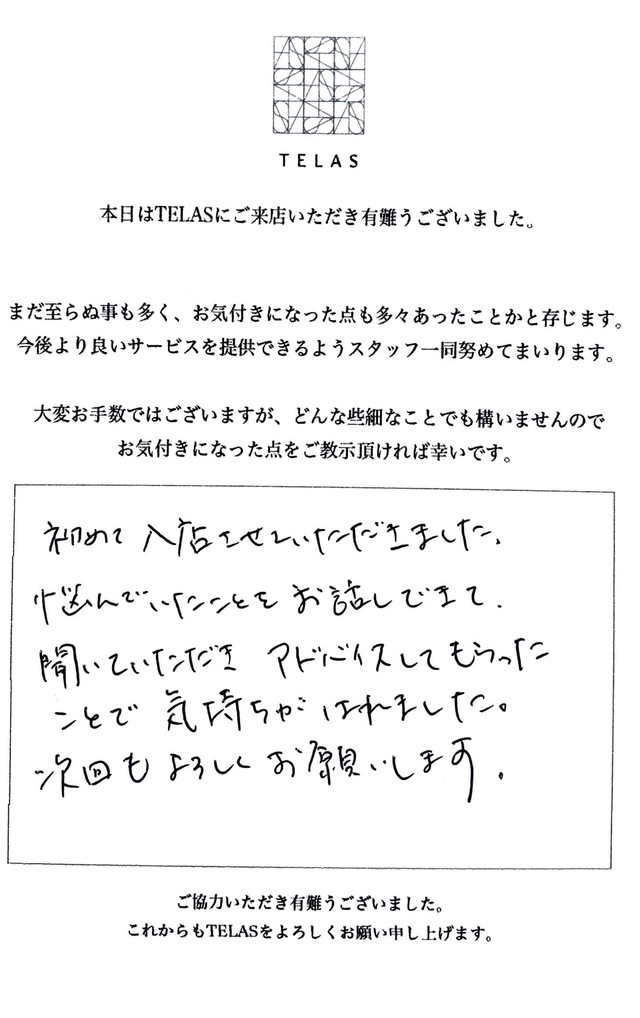 TELAS
本日はTELASにご来店いただき有難うございました。
まだ至らぬ事も多く、お気付きになった点も多々あったことかと存じます。
今後より良いサービスを提供できるようスタッフ一同努めてまいります。
大変お手数ではございますが、どんな些細なことでも構いませんので
お気付きになった点をご教示頂ければ幸いです。
初めて入店させていただきました。
悩んでいたことをお話しできて、
聞いていただき アドバイスしてもらった
ことで 気持ちが はれました。
次回も よろしく お願いします。
ご協力いただき有難うございました。
これからもTELASをよろしくお願い申し上げます。